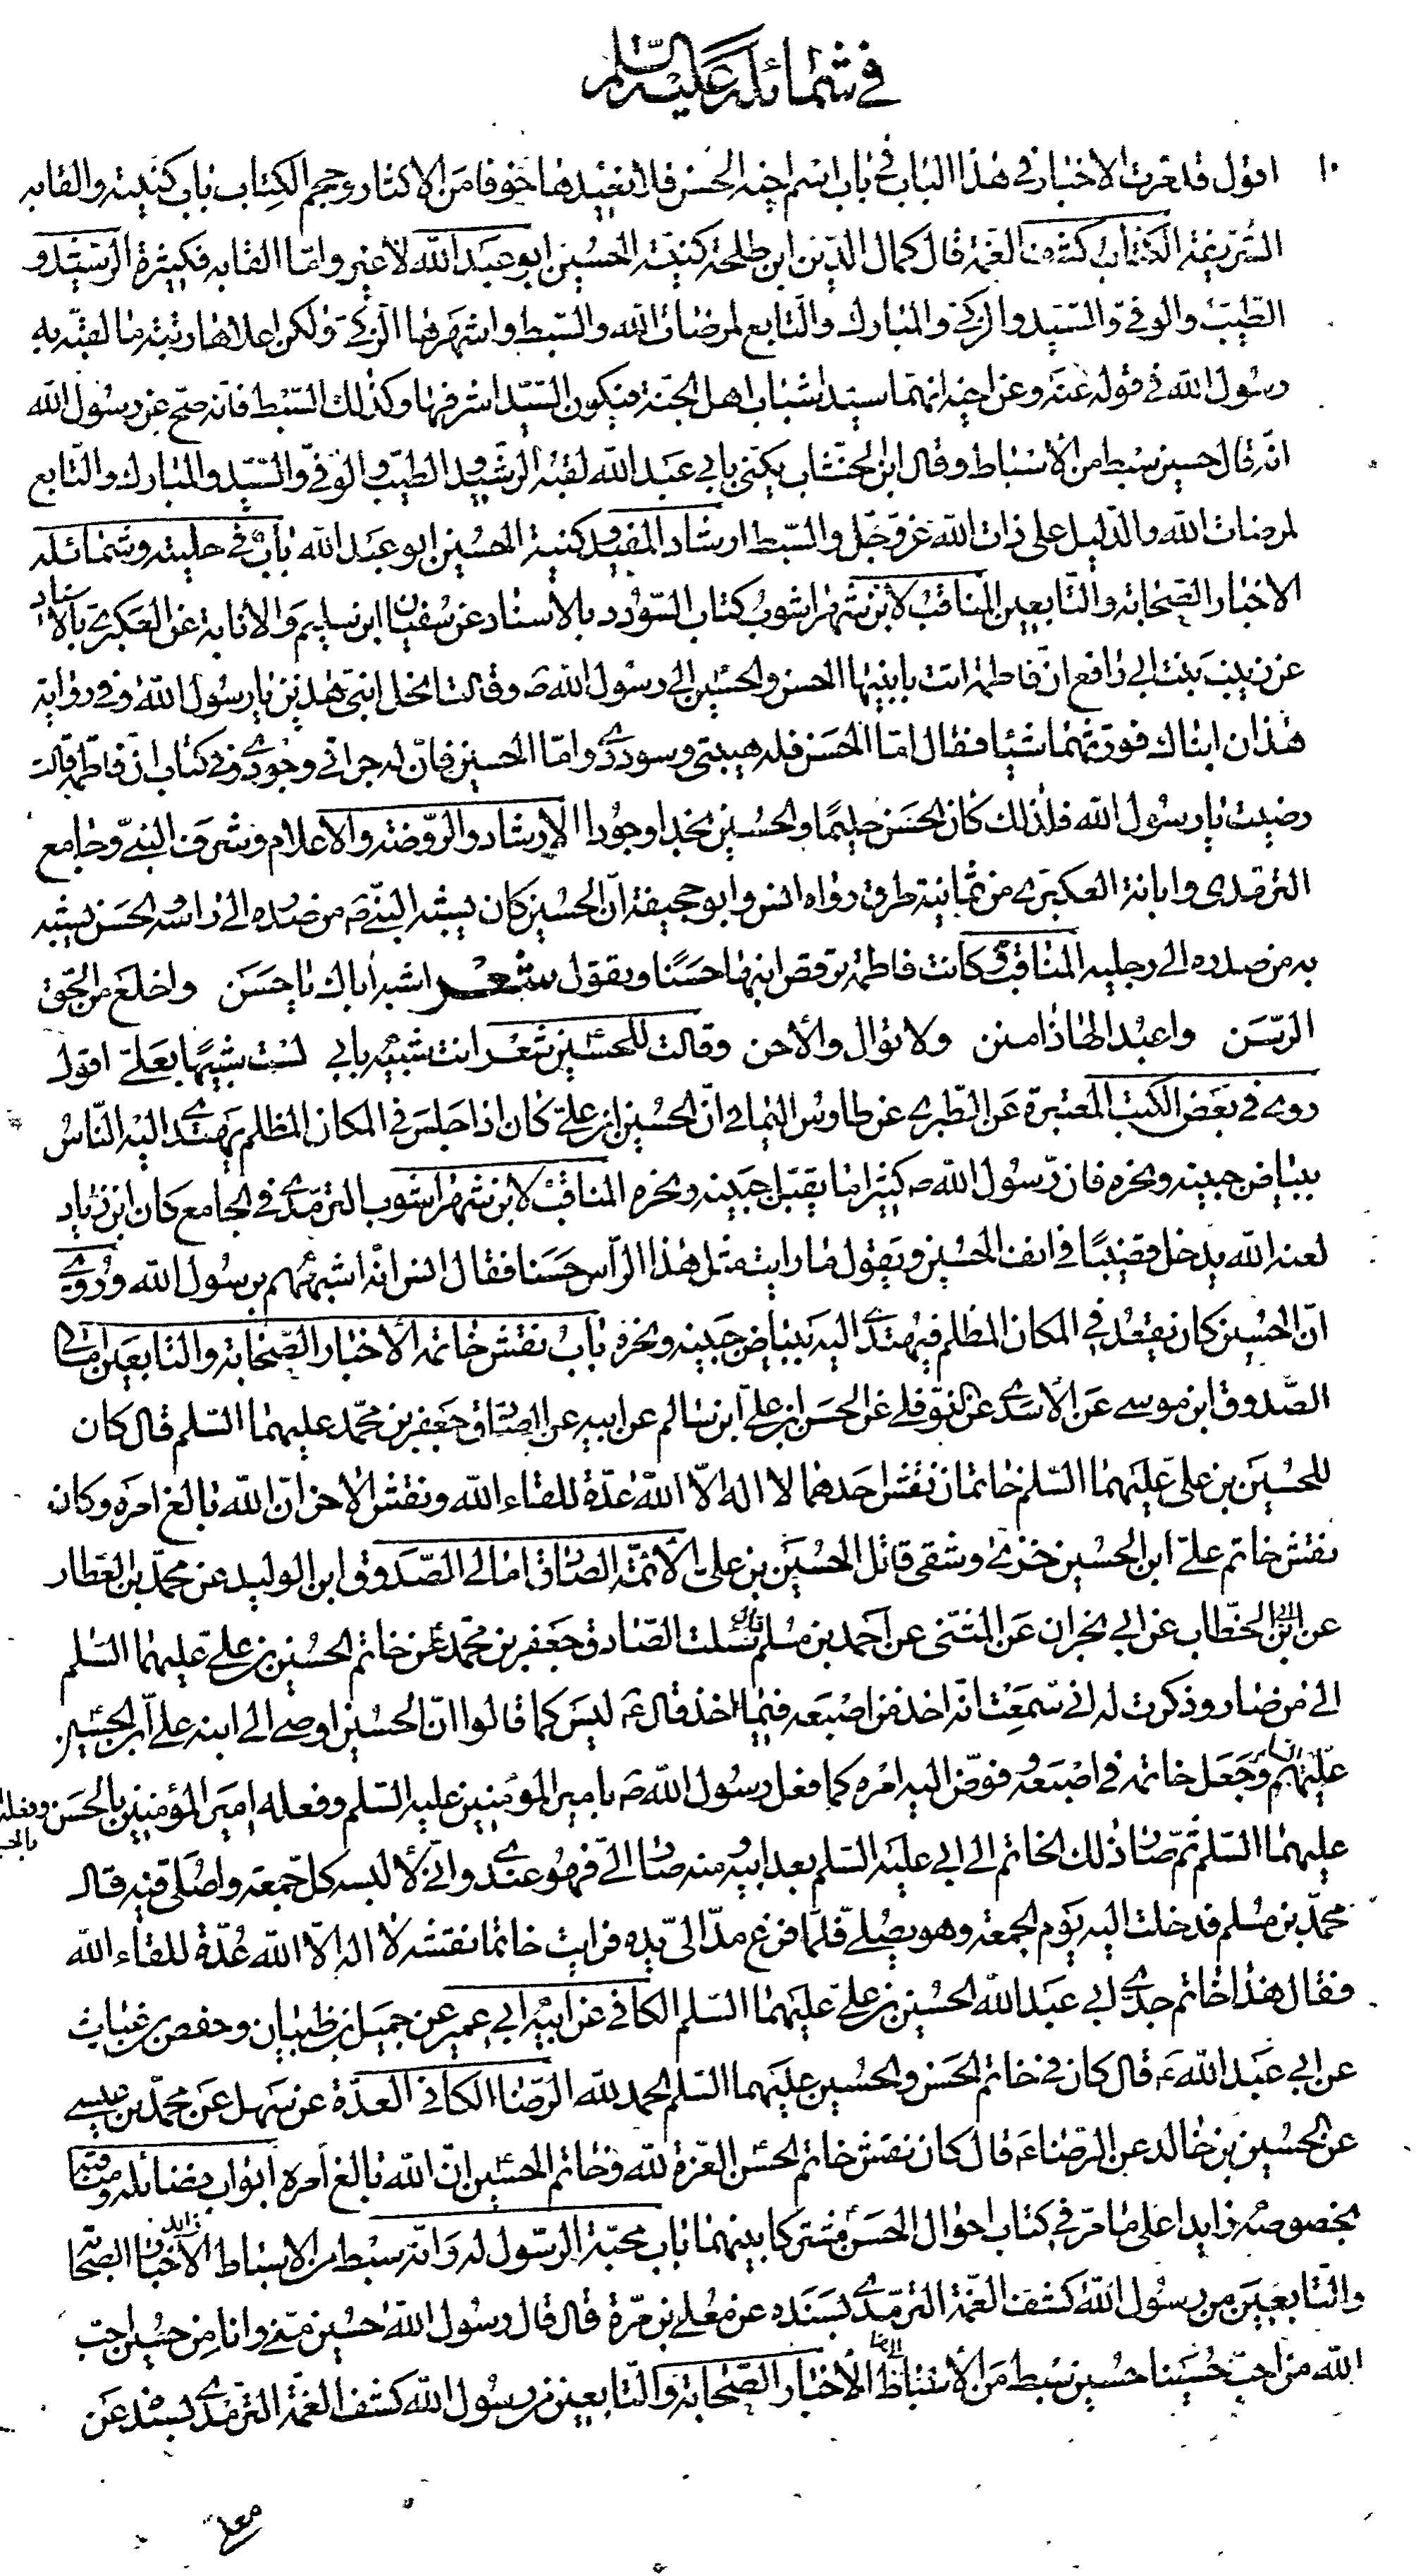 في شمائله عليه السلم
١٠ اقول قد مرت الاخبار في هذا الباب في باب اسم اخيه الحسن فلا نعيدها خوفا من الاكثار وحجم الكتاب باب كنيته والقابه
الشريفة الكتاب كشف الغمة قال كمال الدين ابن طلحة كنية الحسين ابو عبد الله لا غير واما القابه فكثيرة الرشيد و
الطيب والوفي والسيد والزكي والمبارك والتابع لمرضات الله والسبط واشهرها الزكي ولكن اعلاها رتبة ما لقبه به
رسول الله في قوله عنه وعن اخيه انهما سيدا شباب اهل الجنة فيكون السيد اشرفها وكذلك السبط فانه صح عن رسول الله
انه قال حسين سبط من الاسباط وقال ابن الخشاب يكنى بابي عبد الله لقبه الرشيد والطيب والوفي والسيد والمبارك والتابع
لمرضات الله والدليل على ذات الله عز وجل والسبط ارشاد المفيد وكنية الحسين ابو عبد الله باب في حليته وشمائله
الاخبار الصحابة والتابعين المناقب لابن شهراشوب كتاب السؤدد بالاسناد عن سفيان ابن سليم والابانة عن العكبري بالاسناد
عن زينب بنت ابي رافع ان فاطمة اتت بابنيها الحسن والحسين الى رسول الله ص وقالت انحل ابني هذين يا رسول الله وفي رواية
هذان ابناك فورثهما شيئا فقال اما الحسن فله هيبتي وسوددي واما الحسين فان له جراتي وجودي وفي كتاب ان فاطمة قالت
رضيت يا رسول الله فلذلك كان الحسن حليما والحسين نجدا وجودا الارشاد والروضة والاعلام وشرف النبي وجامع
الترمذي وابانة العكبري من ثمانية طرق رواه انس وابو جحيفة ان الحسين كان يشبه النبي ص من صدره الى راسه والحسن يشبه
به من صدره الى رجليه المناقب وكانت فاطمة ترقص ابنها حسنا ويقول شعر اشبه اباك يا حسن واخلع من الحق
الرسن واعبد الها ذا منن ولا توال والاحن وقالت للحسين شعر انت شبيه بابي لست شبيها بعلي اقول
روي في بعض الكتب المعتبرة عن الطبري عن طاوس اليماني ان الحسين بن علي كان اذا جلس في المكان المظلم يهتدي اليه الناس
ببياض جبينه ونحره فان رسول الله ص كثيرا ما يقبل جبينه ونحره المناقب لابن شهراشوب الترمذي في الجامع كان ابن زياد
لعنه الله يدخل قضيبا في انف الحسين ويقول ما رايت مثل هذا الراس حسنا فقال انس انه اشبههم برسول الله وروي
ان الحسين كان يقعد في المكان المظلم فيهتدى اليه ببياض جبينه ونحره باب نقش خاتمه الاخبار الصحابة والتابعين امالي
الصدوق ابن موسى عن الاسدي عن النوفلي عن الحسن بن علي ابن سالم عن ابيه عن الصادق جعفر بن محمد عليهما السلم قال كان
للحسين بن علي عليهما السلم خاتمان نقش احدهما لا اله الا الله عدة للقاء الله ونقش الاخر ان الله بالغ امره وكان
نقش خاتم علي ابن الحسين خزي وشقي قاتل الحسين بن علي الائمة الصادق امالي الصدوق ابن الوليد عن محمد بن العطار
عن ابن ابي الخطاب عن ابي نجران عن المثنى عن احمد بن مسلم قال سئلت الصادق جعفر بن محمد عن خاتم الحسين بن علي عليهما السلم
الى من صار وذكرت له اني سمعت انه اخذ من اصبعه فيما اخذ قال ع ليس كما قالوا ان الحسين اوصى الى ابنه علي ابن الحسين
عليهما السلم وجعل خاتمه في اصبعه وفوض اليه امره كما فعل رسول الله ص بامير المؤمنين عليه السلم وفعله امير المؤمنين بالحسن وفعله
عليهما السلم ثم صار ذلك الخاتم الى ابي عليه السلم بعد ابيه ومنه صار الي فهو عندي واني لالبسه كل جمعة واصلي فيه قال
محمد بن مسلم فدخلت اليه يوم الجمعة وهو يصلي فلما فرغ مد الي يده فرايت خاتما نقشه لا اله الا الله عدة للقاء الله
فقال هذا خاتم جدي ابي عبد الله الحسين بن علي عليهما السلم الكافي عن ابيه ابي عمير عن جميل بن ظبيان وحفص بن غياث
عن ابي عبد الله ع قال كان في خاتم الحسن والحسين عليهما السلم الحمد لله الرضا الكافي العدة عن سهل عن محمد بن عيسى
عن الحسين بن خالد عن الرضا ع قال كان نقش خاتم الحسن العزة لله وخاتم الحسين ان الله بالغ امره ابواب فضائله ومناقبه
بخصوصه زايدا على ما مر في كتاب احوال الحسن مشتركا بينهما باب محبة الرسول له وانه سبط من الاسباط الاخبار الصحابة
والتابعين من رسول الله كشف الغمة الترمذي بسنده عن معلى بن مرة قال قال رسول الله حسين مني وانا من حسين احب
الله من احب حسينا حسين سبط من الاسباط الاخبار الصحابة والتابعين من رسول الله كشف الغمة الترمذي بسنده عن
معلى